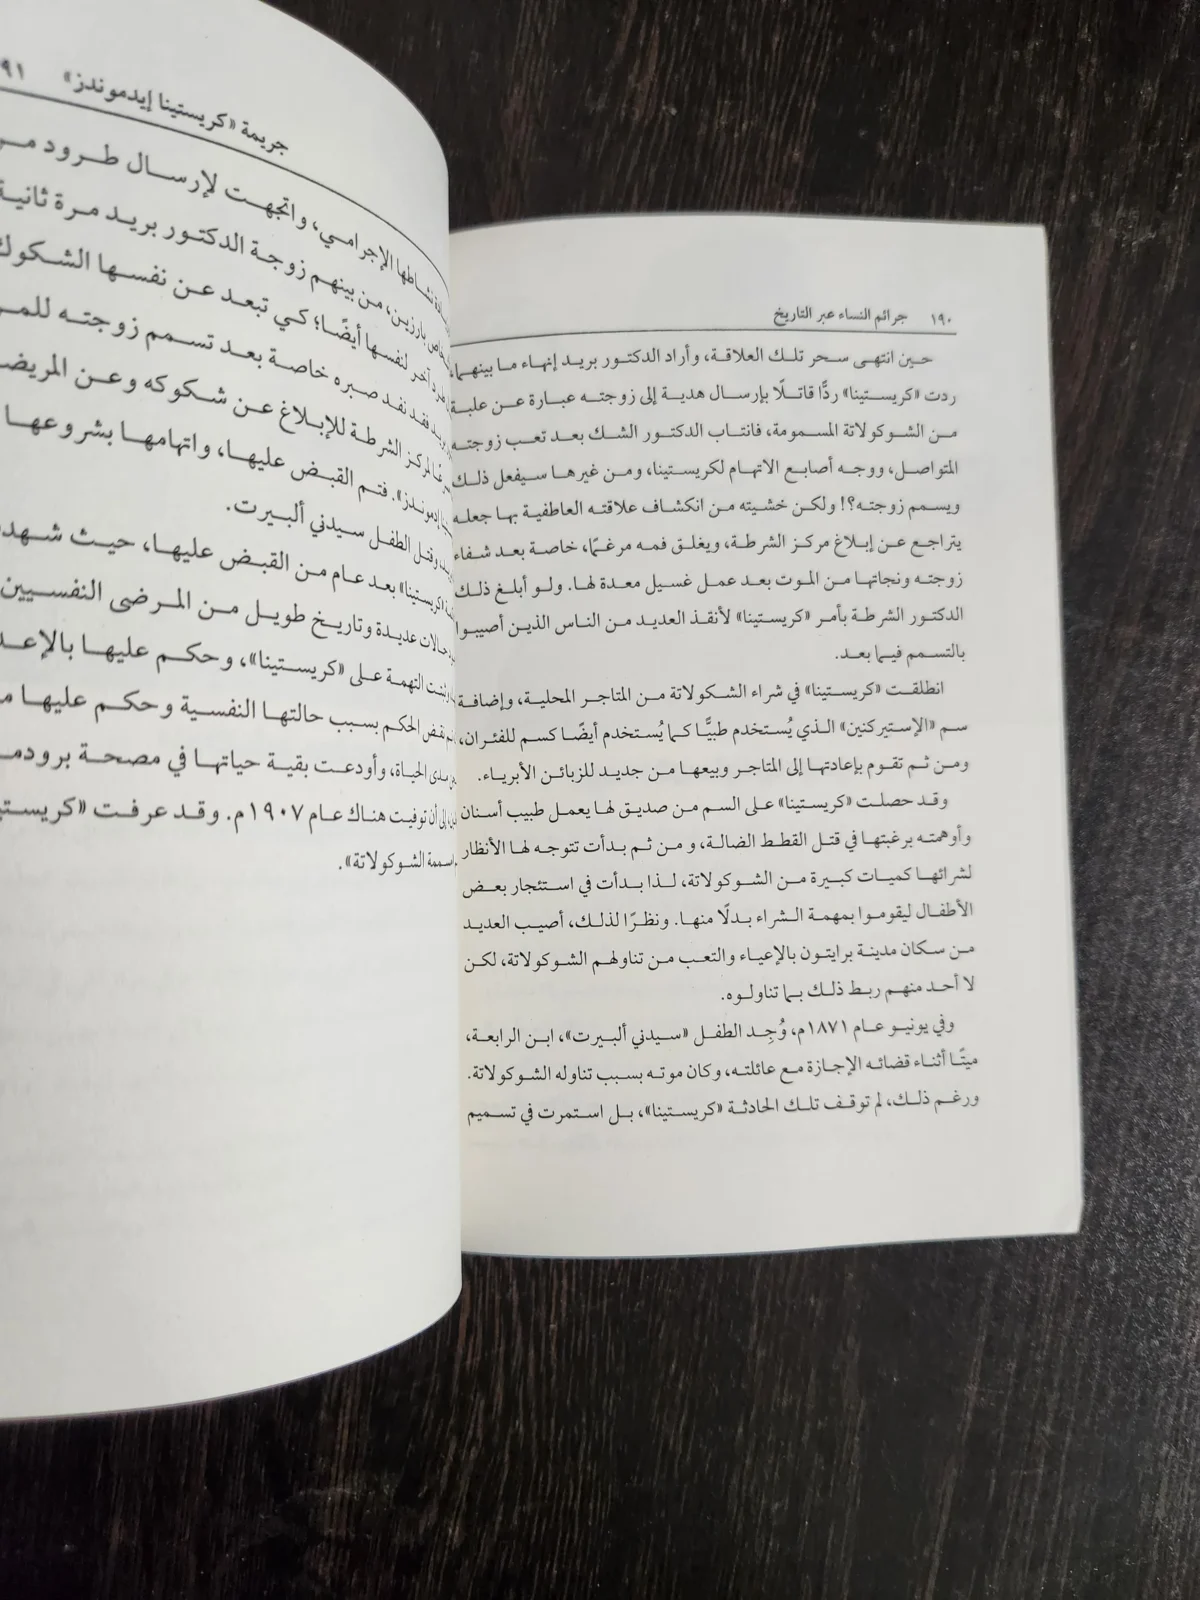 ١٩٠ جرائم النساء عبر التاريخ
حين انتهى سحر تلك العلاقة، وأراد الدكتور بريد إنهاء ما بينهما
ردت «كريستينا» ردًّا قاتلًا بإرسال هدية إلى زوجته عبارة عن علبة
من الشوكولاتة المسمومة، فانتاب الدكتور الشك بعد تعب زوجته
المتواصل، ووجه أصابع الاتهام لكريستينا، ومن غيرها سيفعل ذلك
ويسمم زوجته؟! ولكن خشيته من انكشاف علاقته العاطفية بها جعله
يتراجع عن إبلاغ مركز الشرطة، ويغلق فمه مرغمًا، خاصة بعد شفاء
زوجته ونجاتها من الموت بعد عمل غسيل معدة لها. ولو أبلغ ذلك
الدكتور الشرطة بأمر «كريستينا» لأنقذ العديد من الناس الذين أصيبوا
بالتسمم فيما بعد.
انطلقت «كريستينا» في شراء الشكولاتة من المتاجر المحلية، وإضافة
سم «الإستيركنين» الذي يُستخدم طبيًّا كما يُستخدم أيضًا كسم للفئران،
ومن ثم تقوم بإعادتها إلى المتاجر وبيعها من جديد للزبائن الأبرياء.
وقد حصلت «كريستينا» على السم من صديق لها يعمل طبيب أسنان
وأوهمته برغبتها في قتل القطط الضالة، و من ثم بدأت تتوجه لها الأنظار
لشرائها كميات كبيرة من الشوكولاتة، لذا بدأت في استئجار بعض
الأطفال ليقوموا بمهمة الشراء بدلًا منها. ونظرًا لذلك، أصيب العديد
من سكان مدينة برايتون بالإعياء والتعب من تناولهم الشوكولاتة، لكن
لا أحد منهم ربط ذلك بما تناولوه.
وفي يونيو عام ١٨٧١م، وُجِد الطفل «سيدني ألبيرت»، ابن الرابعة،
ميتًا أثناء قضائه الإجازة مع عائلته، وكان موته بسبب تناوله الشوكولاتة.
ورغم ذلك، لم توقف تلك الحادثة «كريستينا»، بل استمرت في تسميم
جريمة «كريستينا إيدموندز»
نشاطها الإجرامي، واتجهت لإرسال طرود
بارزين، من بينهم زوجة الدكتور بريد مرة ثانية
آخر لنفسها أيضًا؛ كي تبعد عن نفسها
فقد نفد صبره خاصة بعد تسمم زوجته
لمركز الشرطة للإبلاغ عن شكوكه وعن
فتم القبض عليها، واتهامها بشروعها
وقتل الطفل سيدني ألبيرت.
«كريستينا» بعد عام من القبض عليها، حيث
حالات عديدة وتاريخ طويل من المرضى النفسيين
التهمة على «كريستينا»، وحكم عليها
نقض الحكم بسبب حالتها النفسية وحكم عليها
مدى الحياة، وأودعت بقية حياتها في مصحة
إلى أن توفيت هناك عام ١٩٠٧م. وقد عرفت
الشوكولاتة».